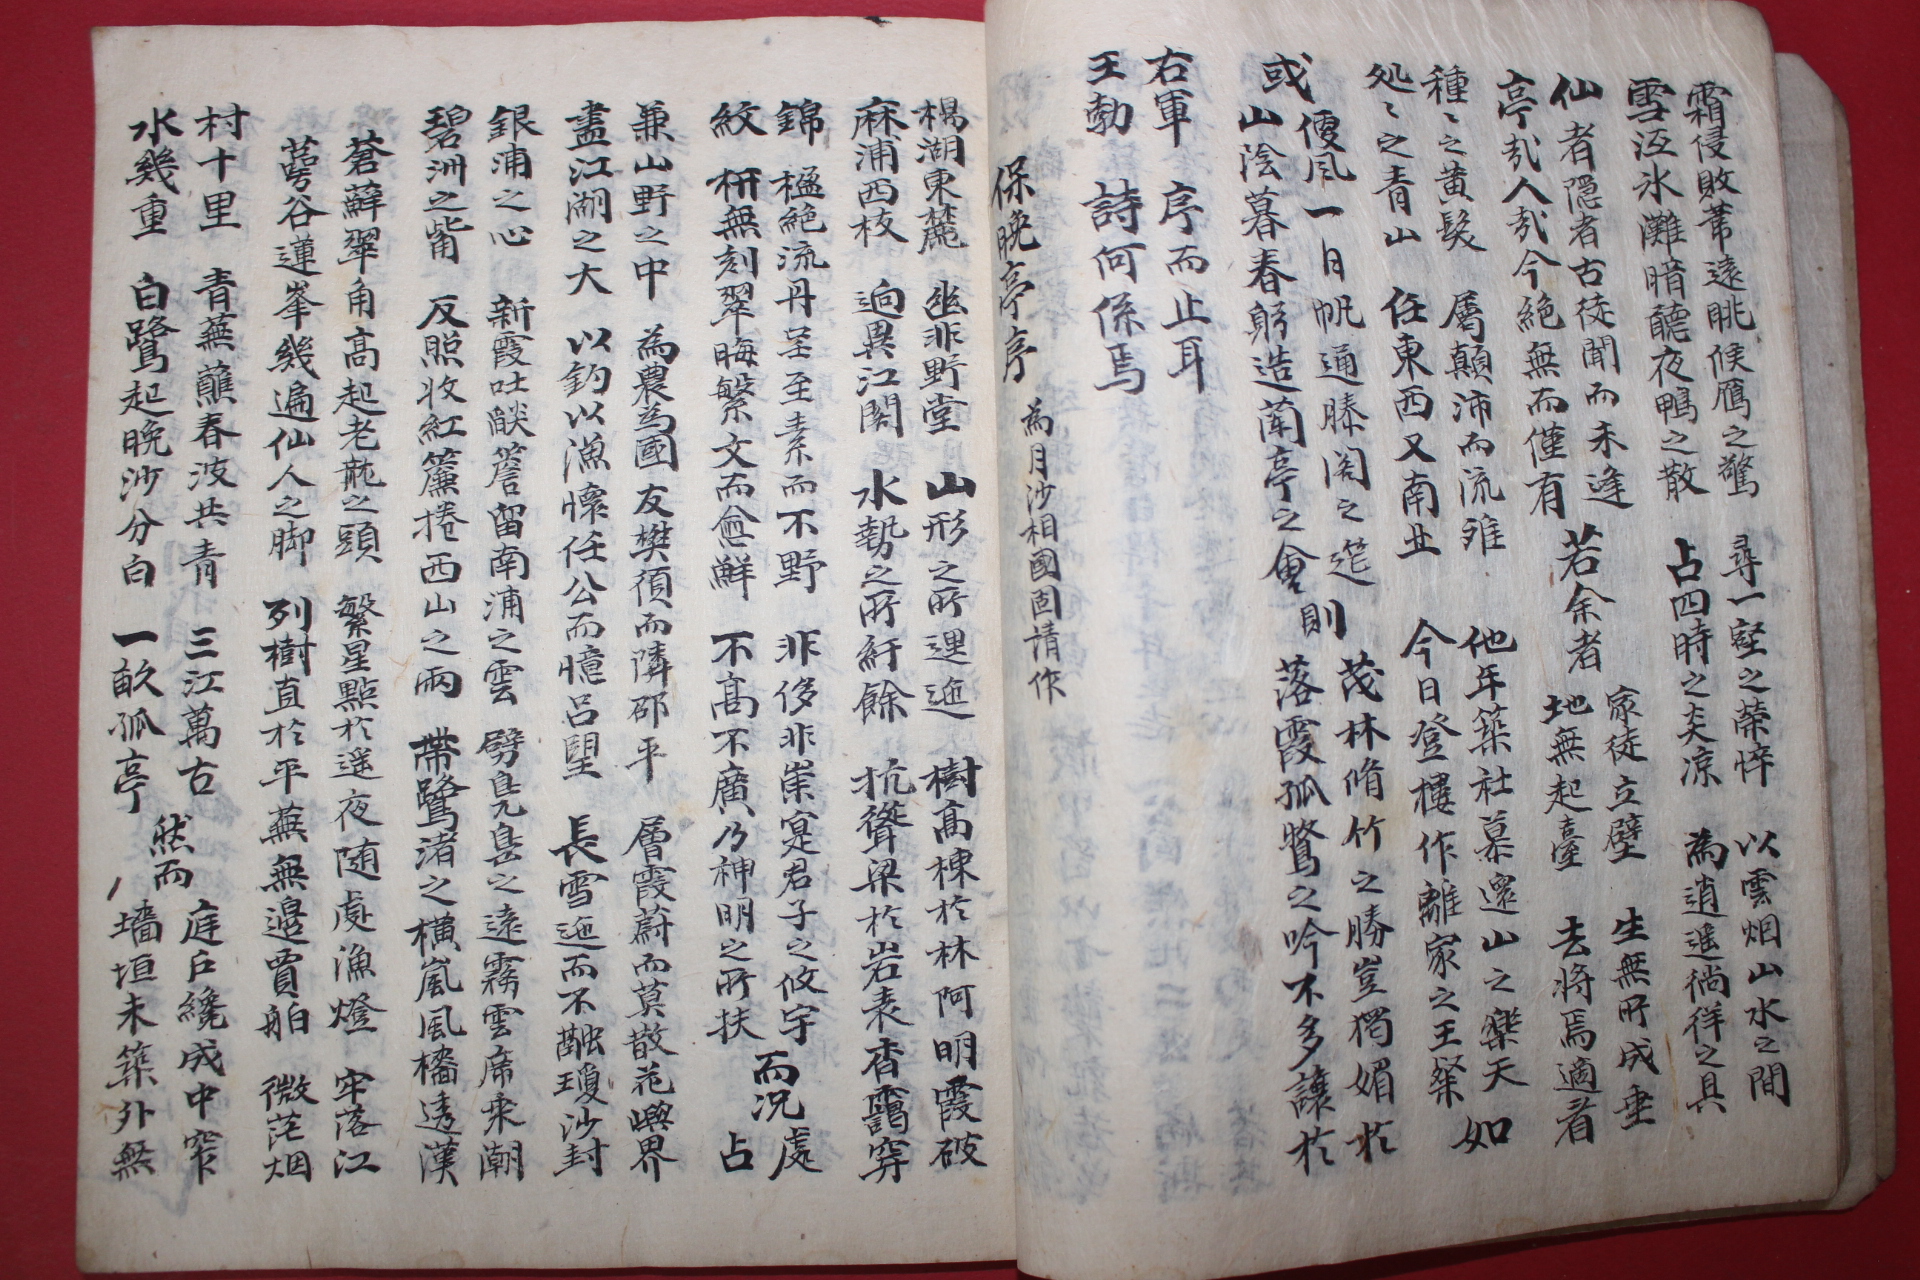 霜侵敗葦遠眺候鴈之驚 尋一壑之榮悴 以雲烟山水之間
雪沍氷灘暗聽夜鴨之散 占四時之炎凉 為逍遥徜徉之具
仙者隱者古徒聞而未逢 若余者 家徒立壁 生無所成垂
亭哉人哉今絶無而僅有 地無起臺 去將焉適者
種〻之黄髮 屬顛沛而流離 他年築社慕還山之樂天 如
処〻之青山 任東西又南北 今日登樓作離家之王粲
或 便風一日帆通滕閣之筵 則 茂林脩竹之勝豈獨媚於
山陰暮春躬造蘭亭之會 落霞孤鶩之吟不多讓於
右軍 序而止耳
王勃 詩何係焉
保晩亭序 為月沙相國固請作
楊湖東麓 坐非野堂 山形之所逕迤 樹高棟於林阿明霞破
麻浦西枝 逈異江閣 水勢之所紆餘 抗聳梁於岩表杳靄穿
錦 楹絶流丹呈至素而不野 非侈非崇寔君子之攸宇 而况 處
紋 枅無刻翠晦繁文而愈鮮 不高不廣乃神明之所扶 占
兼山野之中 為農為圃友樊須而隣邵平 層霞蔚而莫散花嶼界
盡江湖之大 以釣以漁懷任公而憶呂望 長雪迤而不融瓊沙封
銀浦之心 新霞吐燄簷留南浦之雲 劈鳧島之遠霧雲席乘潮
碧洲之觜 反照收紅簾捲西山之雨 帶鷺渚之横嵐風檣透漢
蒼蘚翠角高起老龍之頭 繁星點於遥夜随處漁燈 牢落江
萼谷蓮峯幾遍仙人之脚 列樹直於平蕪無邊賈舶 微茫烟
村十里 青蕪蘸春波共青 三江萬古 然而 庭戶纔成中窄
水幾重 白鷺起晩沙分白 一畝孤亭 墻垣未築外無